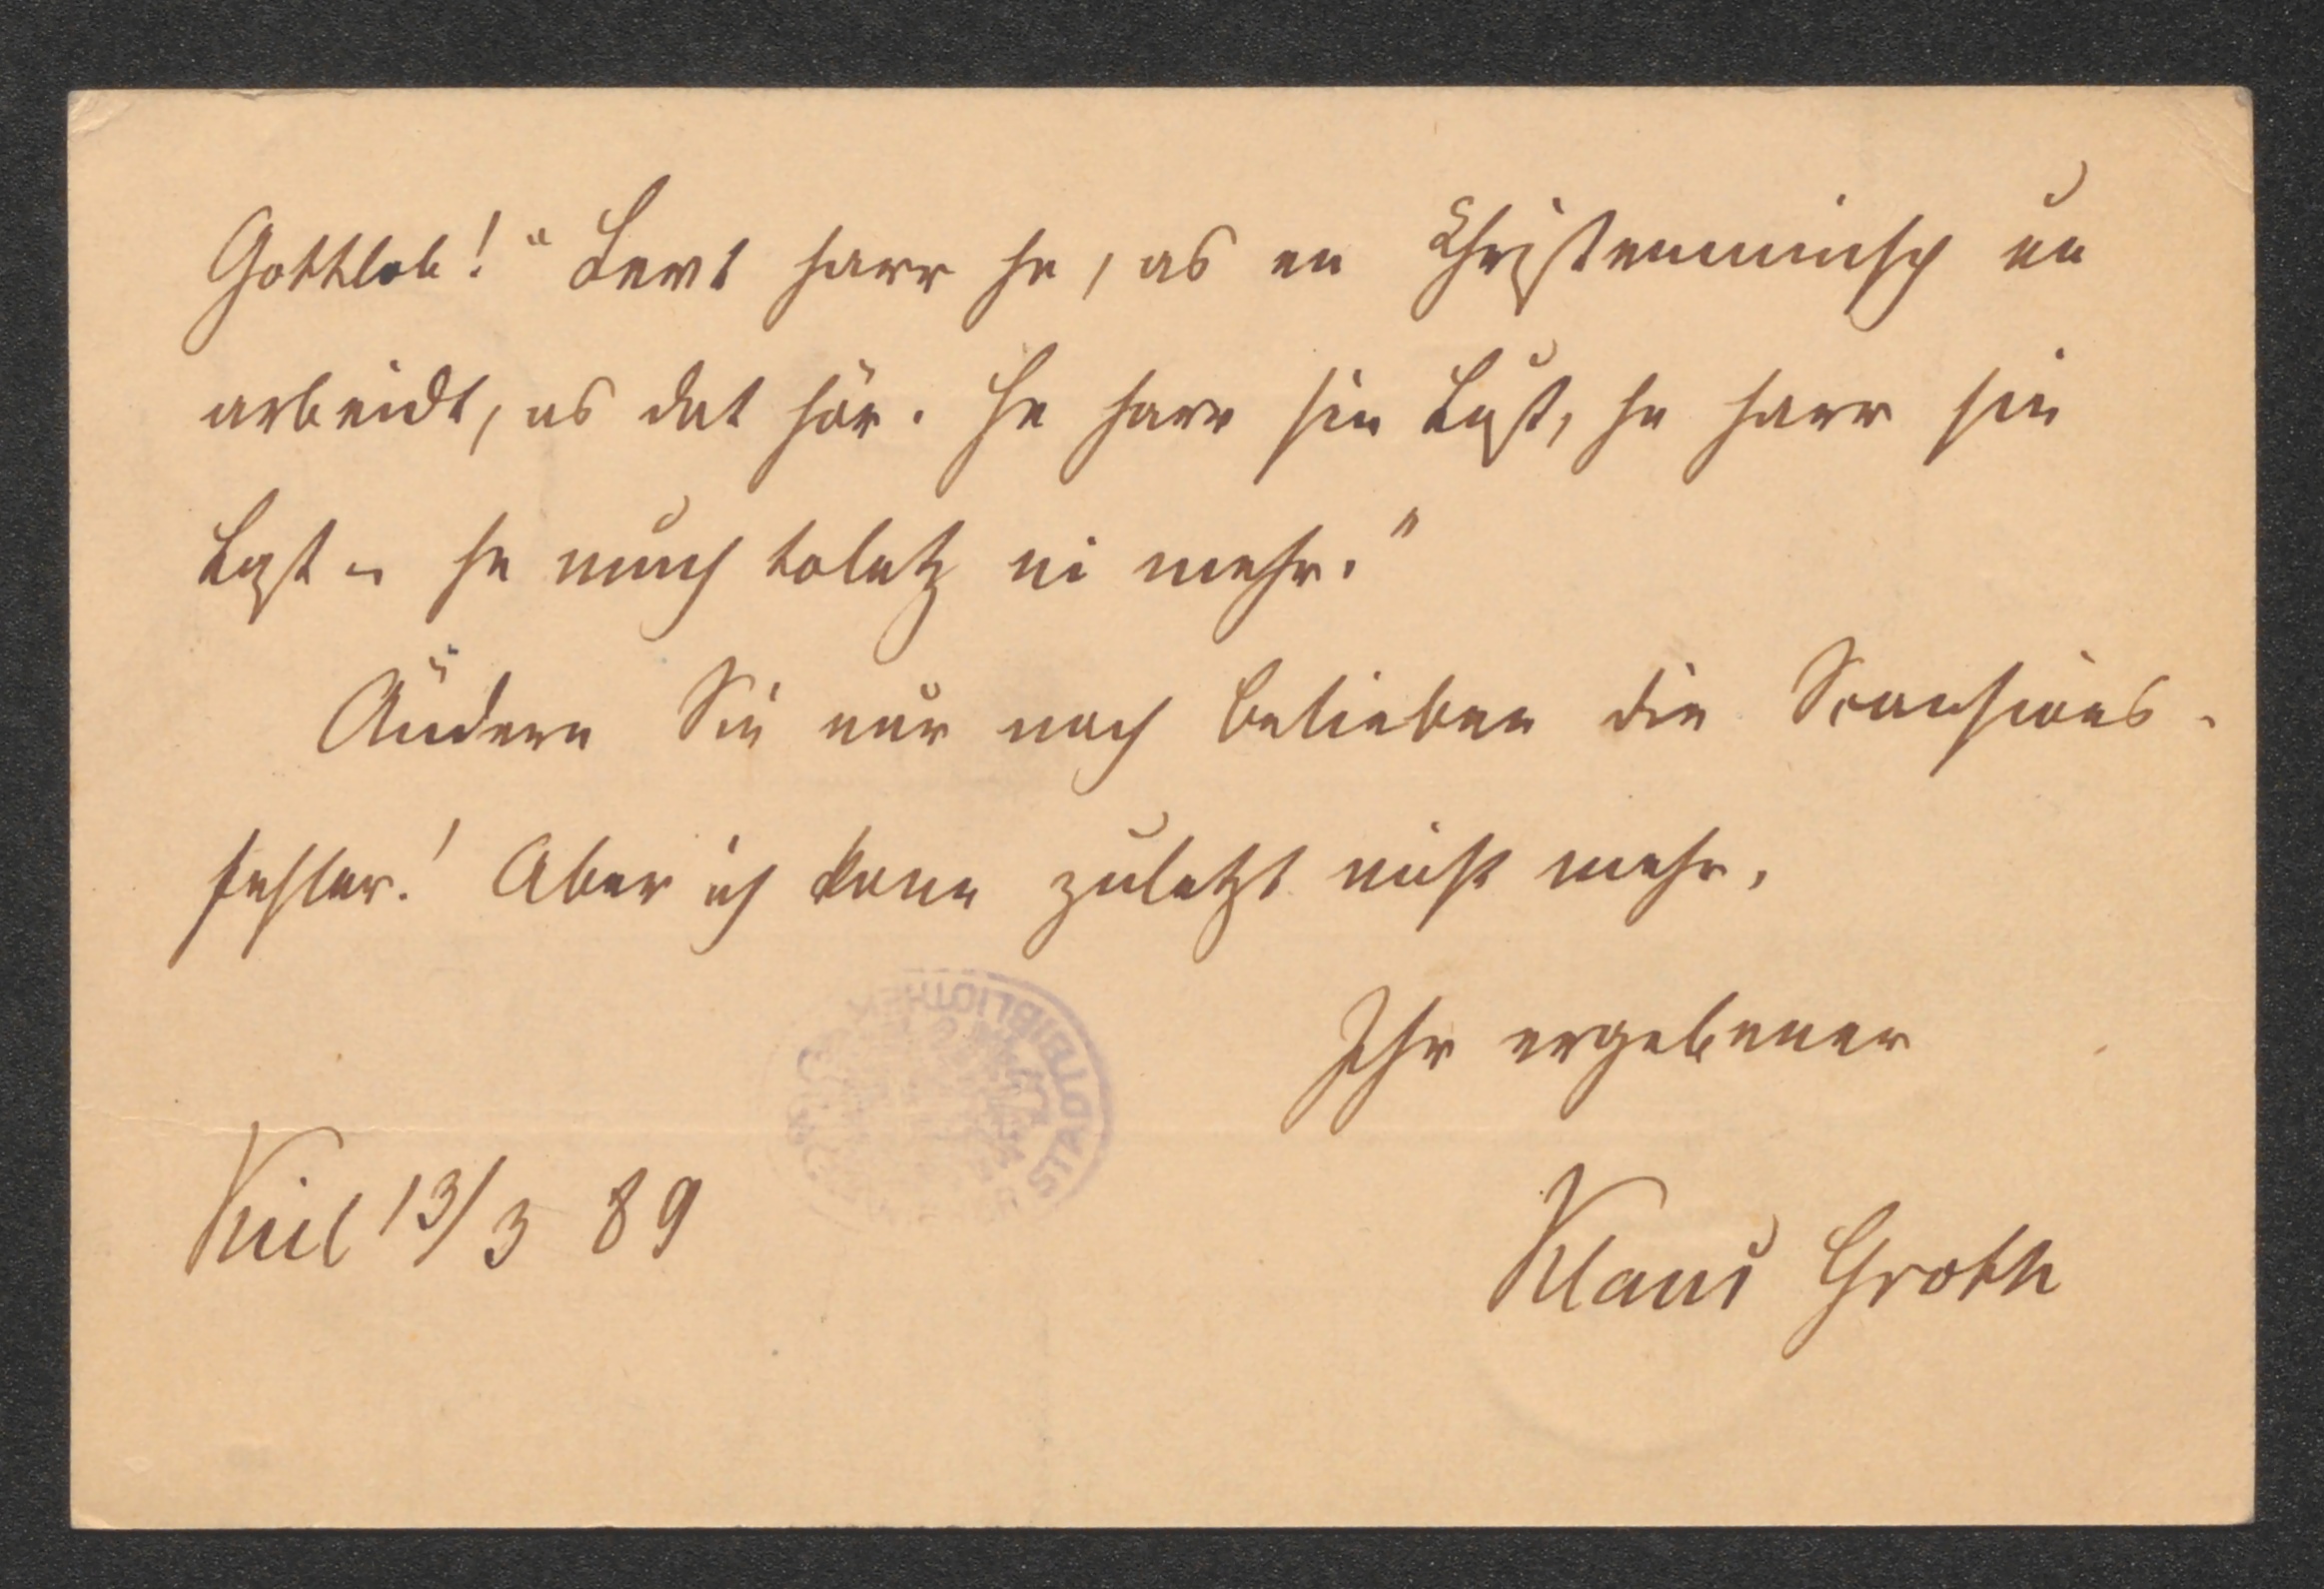 Gottlob!" Levt harr he, as en Christenminsch un
arbeidt, as dat hör. He harr sin Lust, he harr sin
Last – he much toletz ni mehr."
Ändern Sie nur nach Belieben die Scansions-
fehler! Aber ich kann zuletzt nicht mehr.
Ihr ergebener
Kiel 13/3 89
Klaus Groth
STADTBIBLIOTHEK